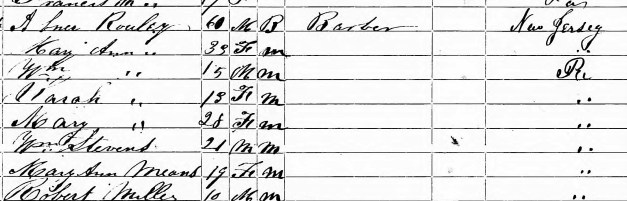 Abner Rouley 60 M B Barber New Jersey
Mary Ann " 33 F m "
Wm " 15 M m Pa
Sarah " 13 F m "
Mary " 28 F m "
Wm Stevens 21 M M "
Mary Ann Means 19 F m "
Robert Miller 10 M m "